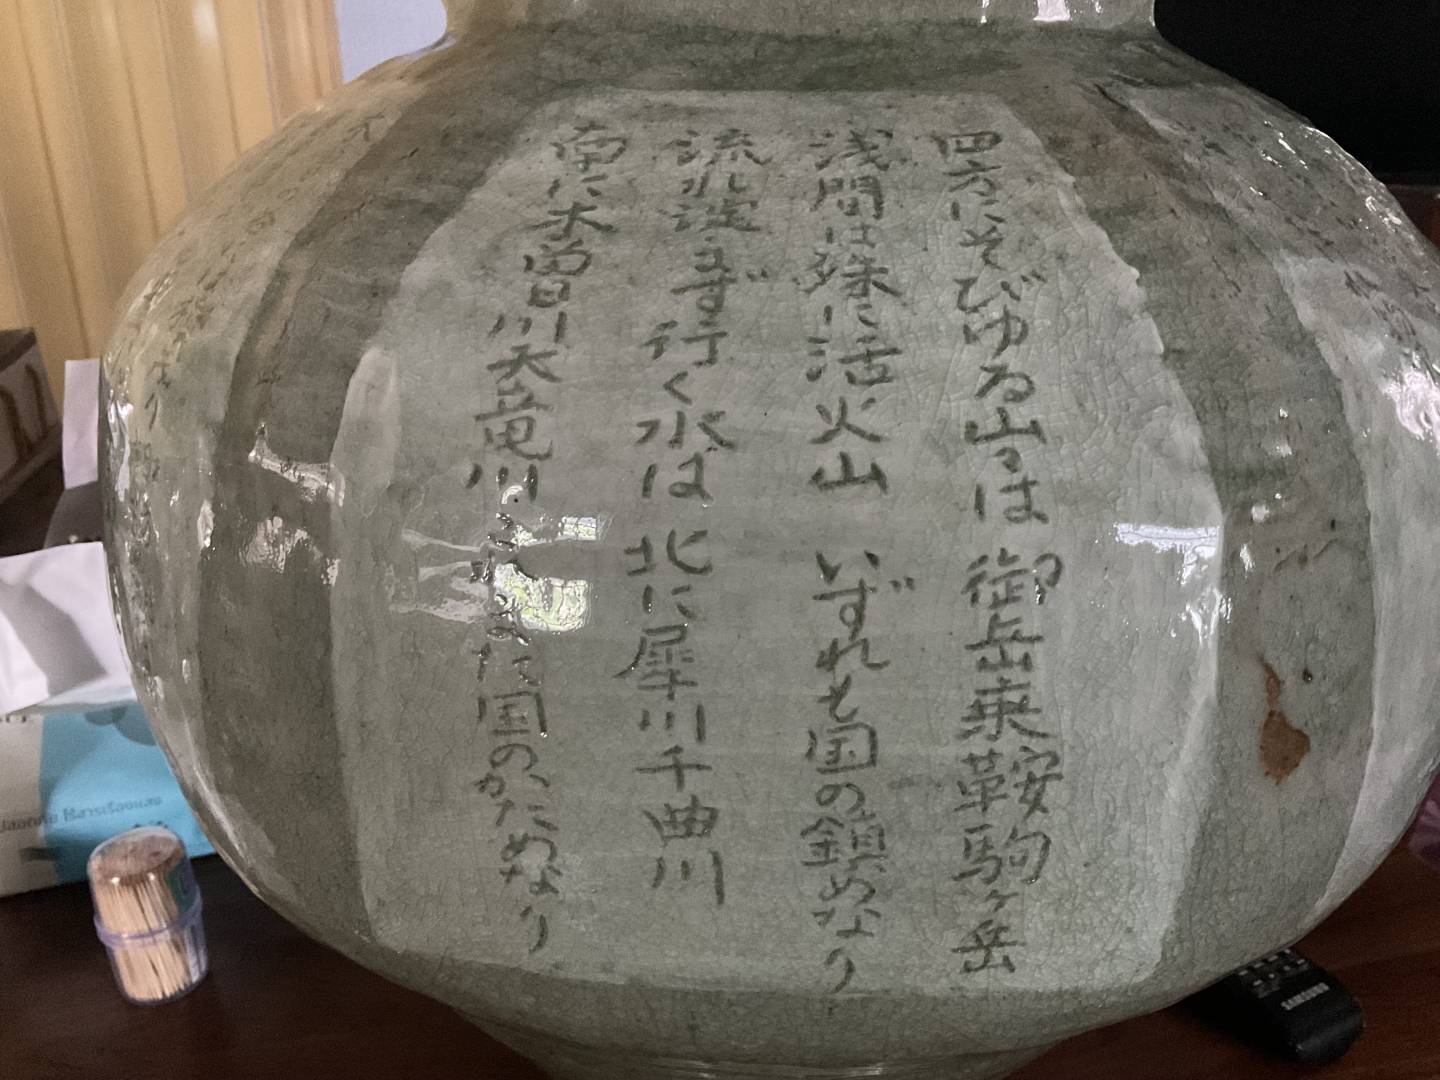 四方にそびゆる山々は 御岳乗鞍駒ヶ岳
浅間は殊に活火山 いずれも国の鎮めなり
流れ淀まず行く水は 北に犀川千曲川
南に木曽川天竜川 これまた国のかためなり
SAMSUNG
ปลอดภัย ไร้สารเรืองแสง